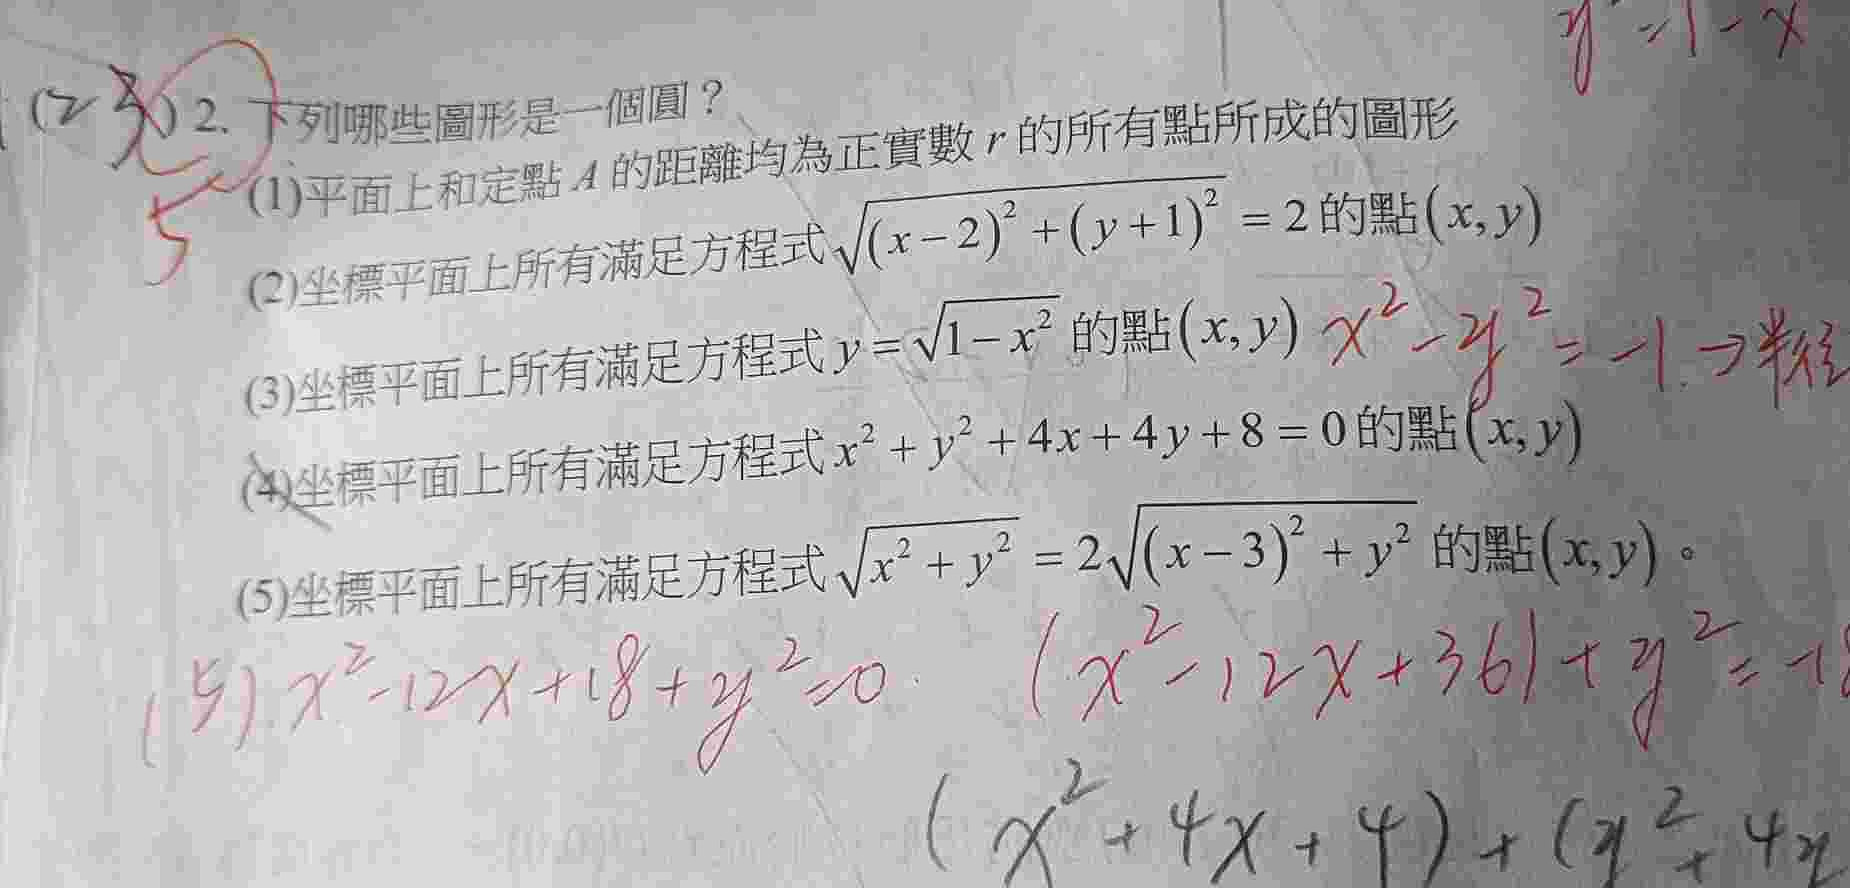 y = 1 - x
(2 3) 2. 下列哪些圖形是一個圓？
5
(1)平面上和定點 A 的距離均為正實數 r 的所有點所成的圖形
(2)坐標平面上所有滿足方程式 √((x-2)²+(y+1)²) = 2 的點(x, y)
(3)坐標平面上所有滿足方程式 y = √(1-x²) 的點(x, y) x² - y² = -1. → 半徑
(4)坐標平面上所有滿足方程式 x² + y² + 4x + 4y + 8 = 0 的點(x, y)
(5)坐標平面上所有滿足方程式 √(x² + y²) = 2√((x-3)² + y²) 的點(x, y)。
(5) x² - 12x + 18 + y² = 0. (x² - 12x + 36) + y² = -18
(x² + 4x + 4) + (y² + 4y